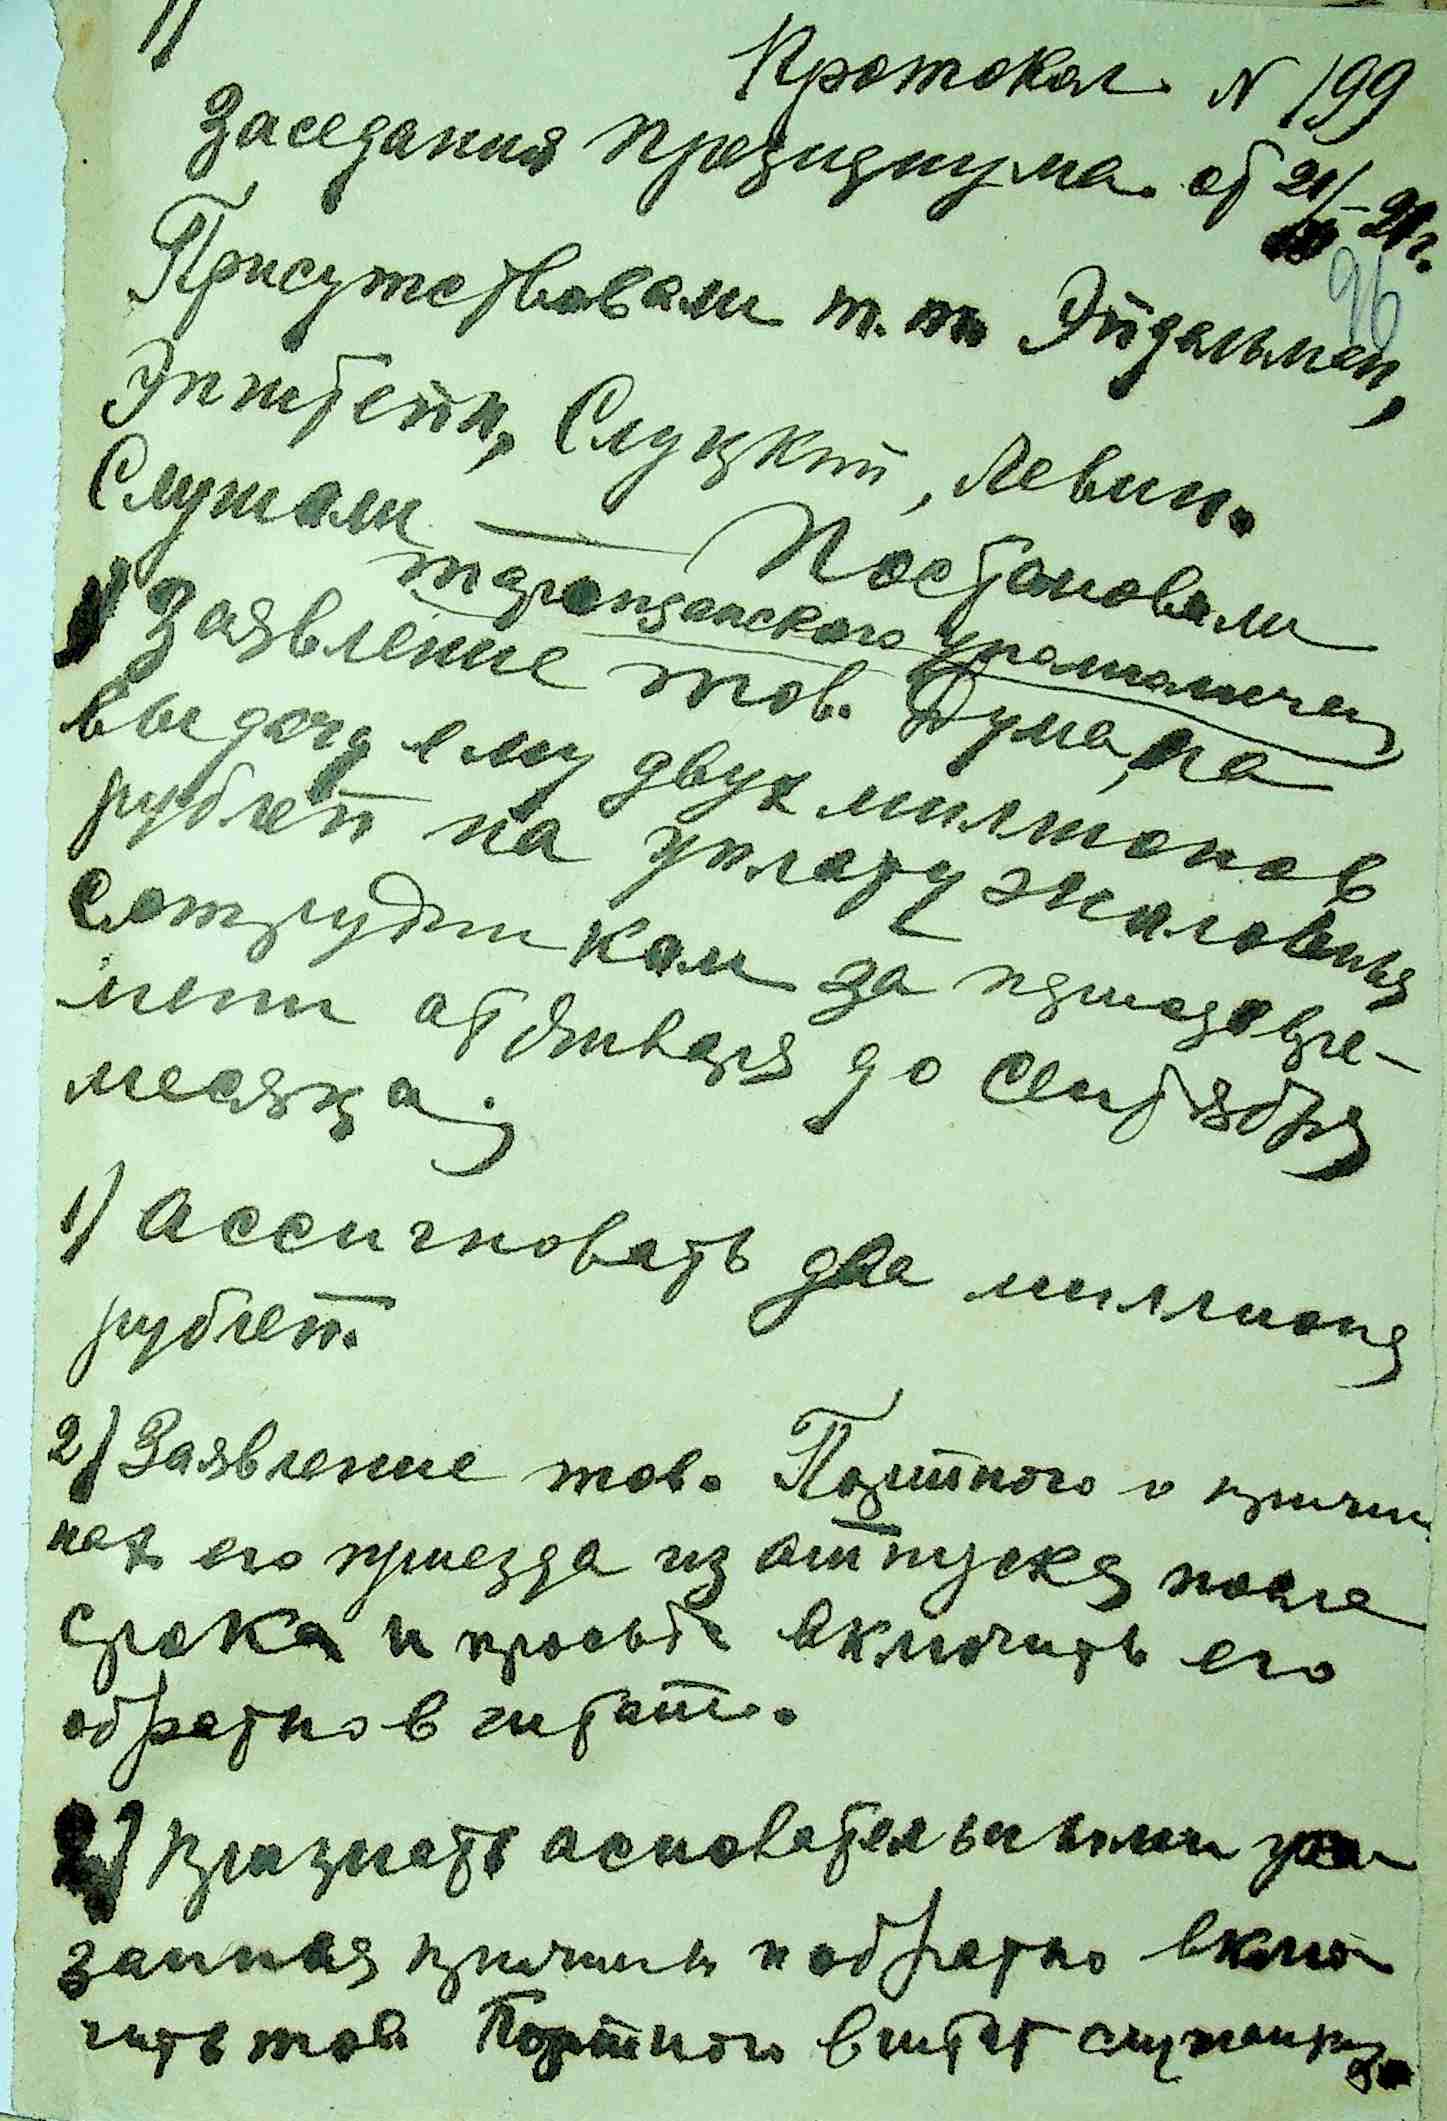 Протокол N 199
Заседания президиума от 21/- 21 г.
96
Присутствовали т.т. Эйдельман,
Эпштейн, Слуцкий, Левин.
Слушали — Постановили
1) Заявление тов. Думана
выдачу ему двух миллионов
рублей на уплату жалованья
сотрудникам за время
мени от Января до Сентября
месяца.
1) Ассигновать два миллиона
рублей.
2) Заявление тов. Портного о причи-
нах его приезда из отпуска после
срока и просьба включить его
обратно в штат.
2) Признать основательными ука
занныя причины и обратно вклю
чить тов. Портного в штат